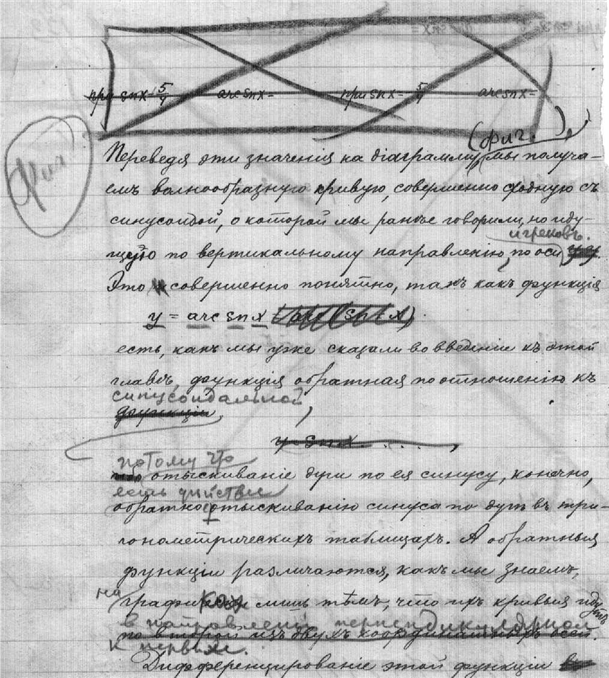 при sn x = 5/4 arc sn x = при sn x = 5/4 arc sn x =
(фиг. ),
Фиг
Переведя эти значенія на діаграмму, мы получа-
емъ волнообразную кривую, совершенно сходную съ
синусоидой, о которой мы ранѣе говорили, но иду-
игрековъ.
щую по вертикальному направленію, по оси
Это совершенно понятно, такъ какъ функція
y = arc sn x
есть, какъ мы уже сказали во введеніе къ этой
главѣ, функція обратная по отношенію къ
синусоидальной
функціи,
y = sn x . . . . ,
потому что
отыскиваніе дуги по ея синусу, конечно,
есть дѣйствіе
обратное отыскиванію синуса по дугѣ въ три-
гонометрическихъ таблицахъ. А обратныя
функціи различаются, какъ мы знаемъ,
на графикахъ лишь тѣмъ, что ихъ кривыя идутъ
в направленіи перпендикулярном
по второй изъ двухъ координатныхъ осей.
к первым.
Дифференцированіе этой функціи